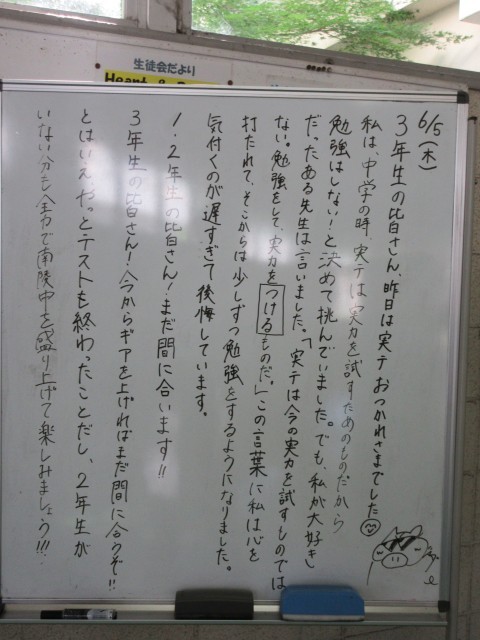 生徒会だより
6/5(木)
3年生の皆さん、昨日は実テおつかれさまでした
私は、中学の時、実テは実力を試すためのものだから
勉強はしない！と決めて挑んでいました。でも、私が大好き
だったある先生は言いました。「実テは今の実力を試すものでは
ない。勉強をして、実力をつけるものだ。」この言葉に私は心を
打たれて、そこからは少しずつ勉強をするようになりました。
気付くのが遅すぎて後悔しています。
1.2年生の皆さん！まだ間に合います!!
3年生の皆さん！今からギアを上げればまだ間に合うぞ!!
とはいえ、やっとテストも終わったことだし、2年生が
いない分も全力で南陵中を盛り上げて楽しみましょう!!!